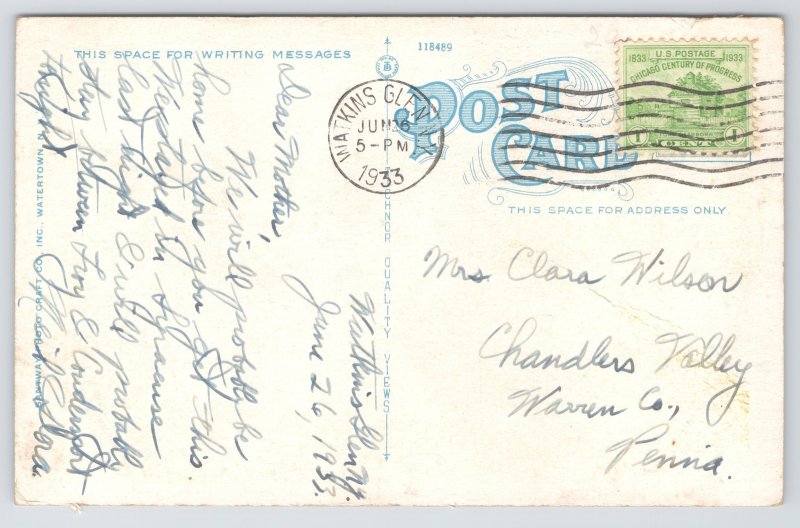 THIS SPACE FOR WRITING MESSAGES
118489
POST
CARD
THIS SPACE FOR ADDRESS ONLY
WATKINS GLEN N.Y.
JUN 26
5-PM
1933
U.S. POSTAGE
1833 1933
CHICAGO CENTURY OF PROGRESS
1 CENT 1
Watkins Glen N.Y.
June 26, 1933.
Dear Mother,
We will probably be
home before you get this
We stayed in Syracuse
last night & will probably
stay between Troy & Coudersport
tonight
Mrs Clara Wilson
Chandlers Valley
Warren Co.,
Penna.
SANTWAY PHOTO CRAFT CO. INC. WATERTOWN, N.Y.
QUALITY VIEWS